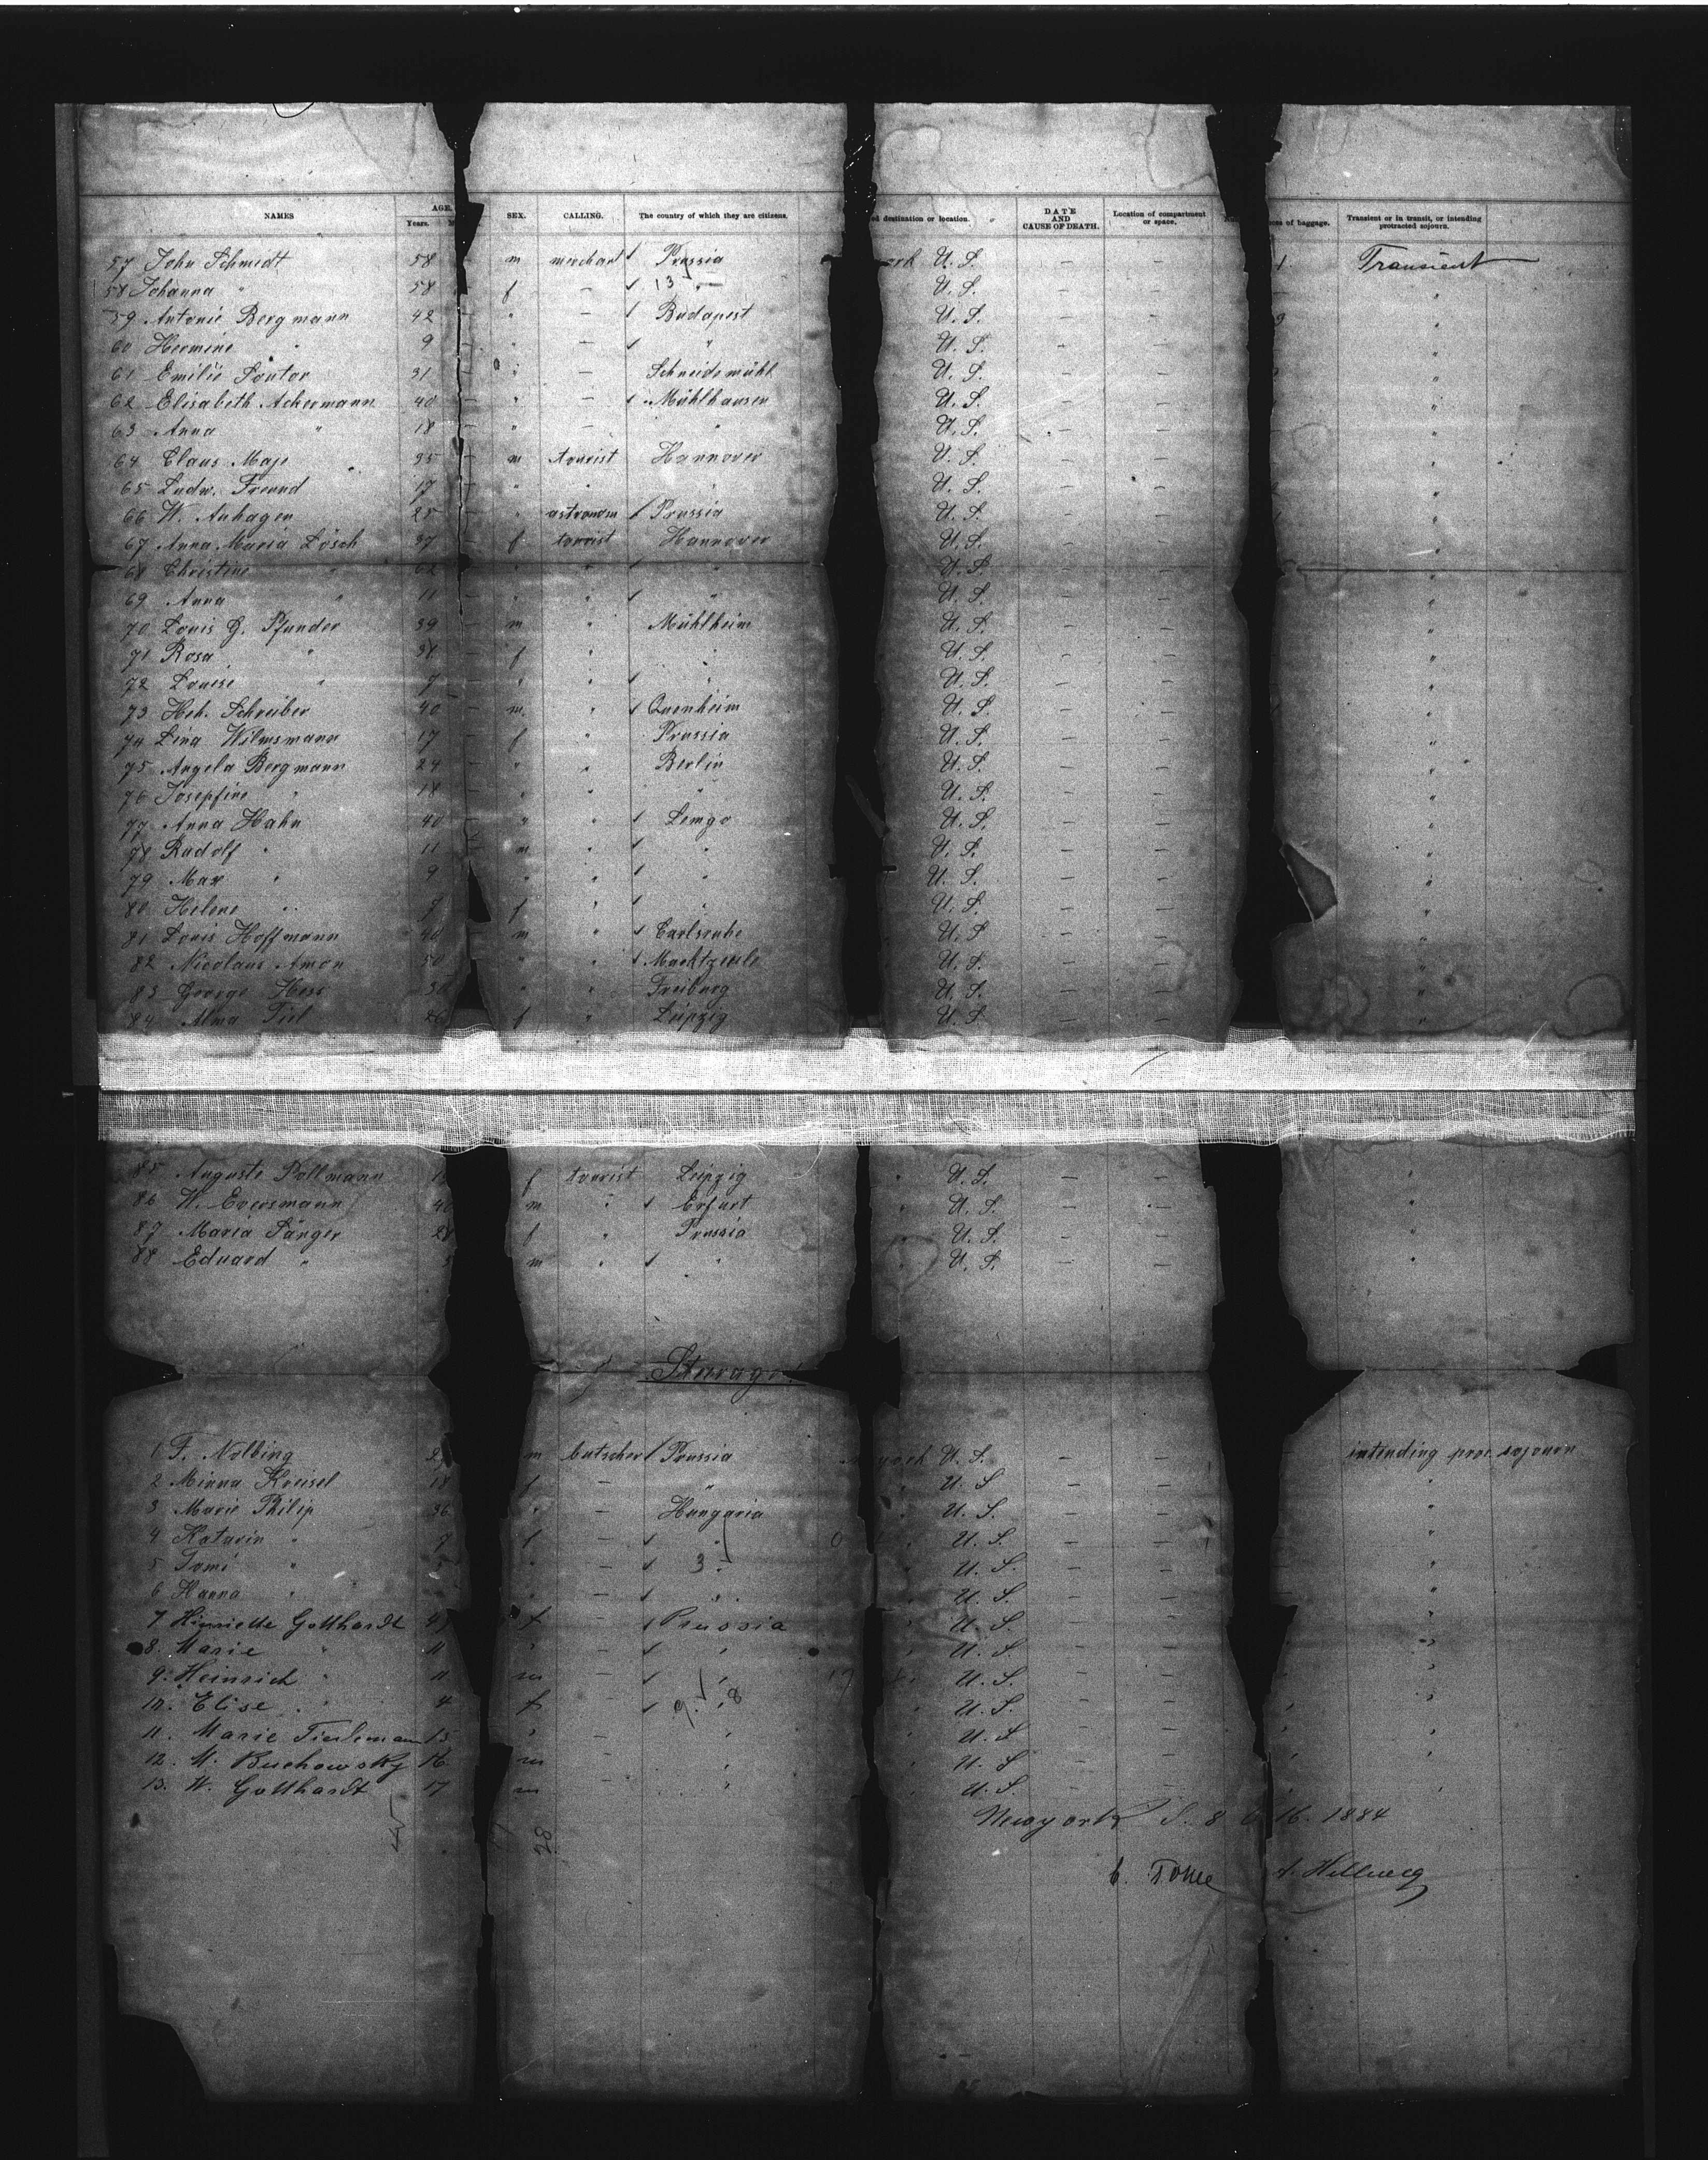 NAMES AGE. SEX. CALLING. The country of which they are citizens. ed destination or location. DATE AND CAUSE OF DEATH. Location of compartment or space. of baggage. Transient or in transit, or intending protracted sojourn.
Years. M
57 John Schmidt 58 – m merchant ✓ Prussia ork U. S. – – 1 Transient
58 Johanna " 58 – f – ✓ 13 – U. S. – – "
59 Antonie Bergmann 42 – " – ✓ Budapest U. S. – – "
60 Hermine " 9 – " – ✓ " U. S. – – "
61 Emilie 31 – " – Schneidemühl U. S. – – "
62 Elisabeth Ackermann 40 – " – ✓ Mühlhausen U. S. – – "
63 Anna " 18 – " – " U. S. – – "
64 Claus 35 – m tourist Hannover U. S. – – "
65 Ludw. Freund 17 – " " " U. S. – – "
66 W. Anhagen 25 – " astronom ✓ Prussia U. S. – – "
67 Anna Maria Lösch 37 – f tourist Hannover U. S. – – "
68 Christine " 62 – " " ✓ " U. S. – – "
69 Anna " 11 – " " ✓ " U. S. – – "
70 Louis G. Pfunder 39 – m " Mühlheim U. S. – – "
71 Rosa " – f " " U. S. – – "
72 Louise " 7 – " " ✓ " U. S. – – "
73 Hch. Schreiber 40 – m " ✓ U. S. – – "
74 Lina Wilmsmann 17 – f " Prussia U. S. – – "
75 Angela Bergmann 24 – " " Berlin U. S. – – "
76 Josepfine " 18 – " " " U. S. – – "
77 Anna Hahn 40 – " " ✓ Lemgo U. S. – – "
78 Rudolf " 11 – m " ✓ " U. S. – – "
79 Max " 9 – " " ✓ " U. S. – – "
80 Helene " f " ✓ " U. S. – – "
81 Louis Hoffmann 40 m " ✓ Carlsruhe U. S. – – "
82 Nicolaus Amon 50 " " ✓ U. S. – – "
83 George Hess " " Freiburg U. S. – – "
84 Alma 26 f " Leipzig U. S. – – "
85 Auguste Pollmann f tourist Leipzig " U. S. – – "
86 W. Eversmann 40 m " ✓ Erfurt " U. S. – – "
87 Maria Sänger 28 f " Prussia " U. S. – – "
88 Eduard " m " ✓ " " U. S. – – "
Steerage.
1 F. Nolbing m butscher ✓ Prussia york U. S. – – intending prot. sojourn
2 Minna Kreisel 18 f – " " U. S – – "
3 Marie Philip 36 " – Hungaria " U. S. – – "
4 Katarin " 7 f – ✓ " 0 " U. S. – – "
5 " " – ✓ 3 – " U. S. – – "
6 Hanna " " – ✓ " " U. S. – – "
7 Henriette Gotthardt f – ✓ Prussia " U. S. – – "
8. Marie " 11 " – ✓ " " U. S. – – "
9. Heinrich " 11 m – ✓ " 17 " U. S. – – "
10. Elise " 4 f – ✓ 9. 8 " U. S. – – "
11. Marie 15 " – " " U. S – – "
12. M. Buchowsky 16 m – " " U. S – – "
13. W. Gotthardt 17 m – " " U. S. "
28
Newyork S. S. 16. 1884